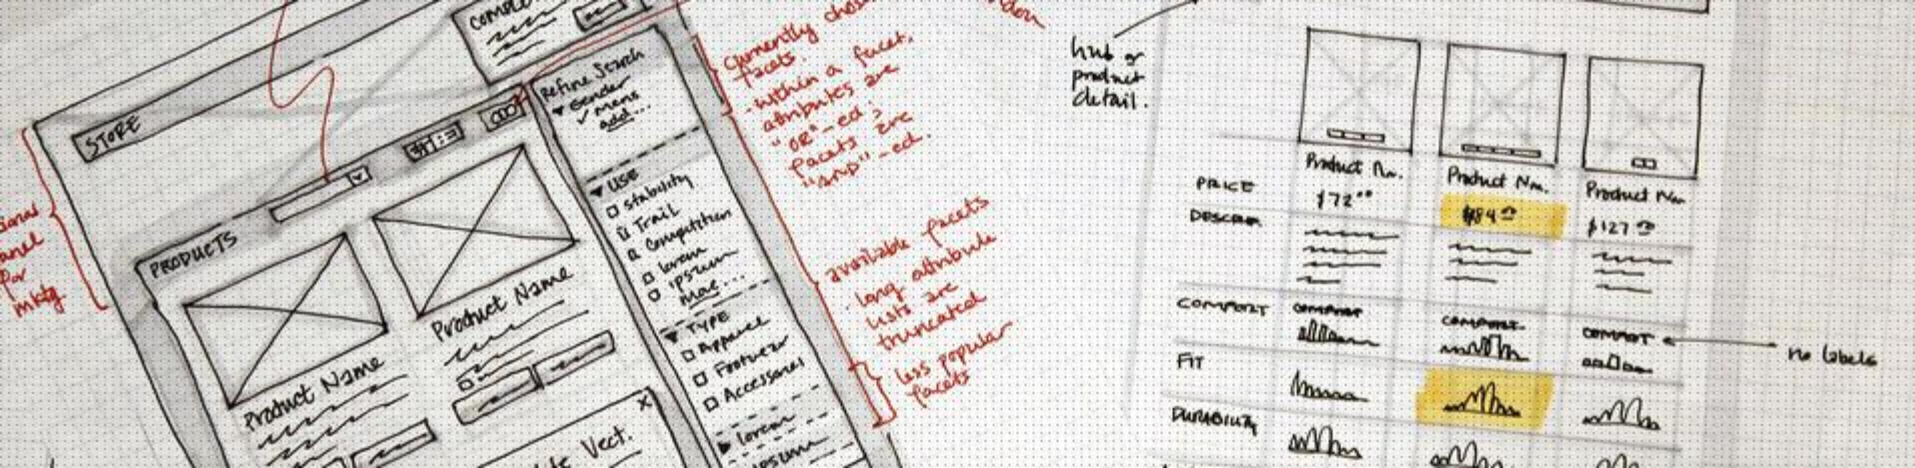 STORE
COMPA
PRODUCTS
Product Name
Product Name
Refine Search
Gender
✓ mens
add...
USE
stability
Trail
Competition
lorem
ipsum
more...
TYPE
Apparel
Footwear
Accessories
lorem
ipsum
X
Vect.
panel
for
mktg
Currently chosen
facets.
- within a facet,
attributes are
"OR"-ed;
facets are
"AND"-ed.
available facets
- long attribute
lists are
truncated
less popular
facets
hub or
product
detail.
Product Nm.
Product Nm.
Product Nm
PRICE
$72.00
$84
$127
COMFORT
COMFORT
COMFORT
COMFORT
no labels
FIT
DURABILITY